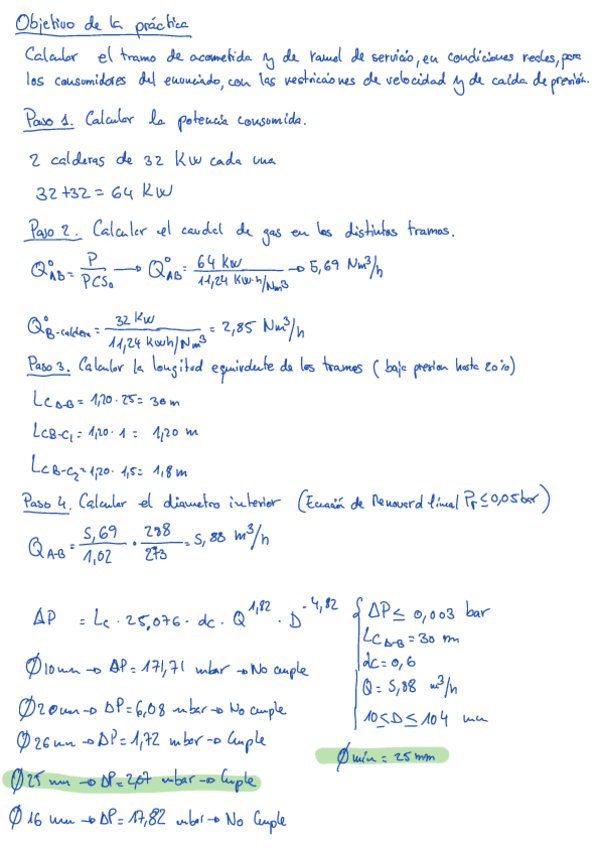 Objetivo de la práctica
Calcular el tramo de acometida y de ramal de servicio, en condiciones reales, para
los consumidores del enunciado, con las restricciones de velocidad y de caída de presión.
Paso 1. Calcular la potencia consumida.
2 calderas de 32 KW cada una
32+32 = 64 KW
Paso 2. Calcular el caudal de gas en los distintos tramos.
Q°AB = P/PCS₀ → Q°AB = 64 KW / 11,24 KW·h/Nm³ → 5,69 Nm³/h
Q°B-caldera = 32 KW / 11,24 KWh/Nm³ = 2,85 Nm³/h
Paso 3. Calcular la longitud equivalente de los tramos (baja presion hasta 20%)
LcA-B = 1,20·25 = 30 m
LcB-C₁ = 1,20·1 = 1,20 m
LcB-C₂ = 1,20·1,5 = 1,8 m
Paso 4. Calcular el diametro interior (Ecuación de Renouard lineal Pr ≤ 0,05 bar)
QA-B = 5,69/1,02 · 288/273 = 5,88 m³/h
ΔP = Lc · 25,076 · dc · Q^1,82 · D^-4,82
ΔP ≤ 0,003 bar
LcA-B = 30 m
dc = 0,6
Q = 5,88 m³/h
10 ≤ D ≤ 104 mm
Ø10mm → ΔP = 171,71 mbar → No cumple
Ø20mm → ΔP = 6,08 mbar → No cumple
Ø26mm → ΔP = 1,72 mbar → Cumple
Ø25 mm → ΔP = 2,07 mbar → Cumple
Ø16 mm → ΔP = 17,82 mbar → No Cumple
Ømin = 25 mm